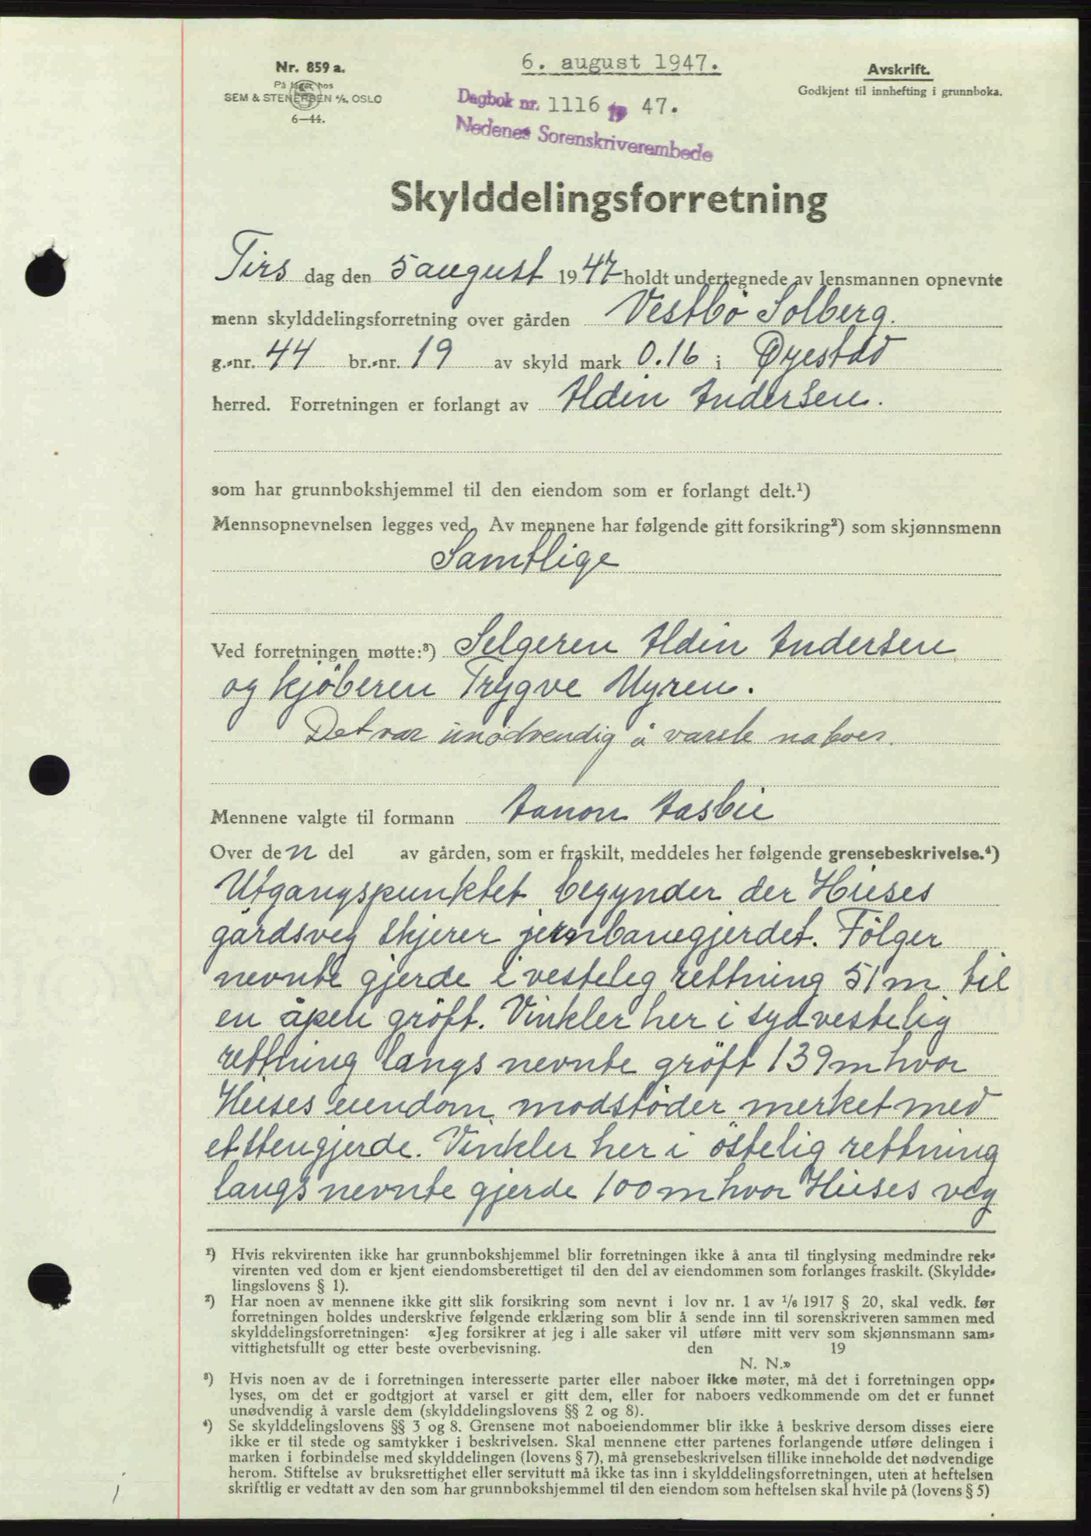 6. august 1947.
Nr. 859 a.
På lager hos
SEM & STENERSEN A/S, OSLO
6—44.
Avskrift.
Godkjent til innhefting i grunnboka.
Dagbok nr. 1116 19 47.
Nedenes Sorenskriverembede
Skylddelingsforretning
Tirs dag den 5 august 1947 holdt undertegnede av lensmannen opnevnte
menn skylddelingsforretning over gården Vestbø Solberg.
g.-nr. 44 br.-nr. 19 av skyld mark 0.16 i Øyestad
herred. Forretningen er forlangt av Aldin Andersen.
som har grunnbokshjemmel til den eiendom som er forlangt delt.¹)
Mennsopnevnelsen legges ved. Av mennene har følgende gitt forsikring²) som skjønnsmenn
Samtlige
Ved forretningen møtte:³) Selgeren Aldin Andersen
og kjöberen Trygve Myren.
Det var unödvendig å varsle naboer.
Mennene valgte til formann Aanon Aasbie
Over den del av gården, som er fraskilt, meddeles her følgende grensebeskrivelse.⁴)
Utgangspunktet begynder der Huses
gårdsveg skjerer jernbanegjerdet. Fölger
nevnte gjerde i vesteleg rettning 51 m til
en åpen gröft. Vinkler her i sydvestelig
rettning langs nevnte gröft 139 m hvor
Huses eiendom modstöder merket med
et stengjerde. Vinkler her i östelig rettning
langs nevnte gjerde 100 m hvor Huses veg
¹) Hvis rekvirenten ikke har grunnbokshjemmel blir forretningen ikke å anta til tinglysing medmindre rek-
virenten ved dom er kjent eiendomsberettiget til den del av eiendommen som forlanges fraskilt. (Skyldde-
lingslovens § 1).
²) Har noen av mennene ikke gitt slik forsikring som nevnt i lov nr. 1 av ¹/₆ 1917 § 20, skal vedk. før
forretningen holdes underskrive følgende erklæring som blir å sende inn til sorenskriveren sammen med
skylddelingsforretningen: «Jeg forsikrer at jeg i alle saker vil utføre mitt verv som skjønnsmann sam-
vittighetsfullt og etter beste overbevisning. den 19
N. N.»
³) Hvis noen av de i forretningen interesserte parter eller naboer ikke møter, må det i forretningen opp-
lyses, om det er godtgjort at varsel er gitt dem, eller for naboers vedkommende om det er funnet
unødvendig å varsle dem (skylddelingslovens §§ 2 og 8).
⁴) Se skylddelingslovens §§ 3 og 8. Grensene mot naboeiendommer blir ikke å beskrive dersom disses eiere
ikke er til stede og samtykker i beskrivelsen. Skal mennene etter partenes forlangende utføre delingen i
marken i forbindelse med skylddelingen (lovens § 7), må grensebeskrivelsen tillike inneholde det nødvendige
herom. Stiftelse av bruksrettighet eller servitutt må ikke tas inn i skylddelingsforretningen, uten at heftelsen
skriftlig er vedtatt av den som har grunnbokshjemmel til den eiendom som heftelsen skal hvile på (lovens § 5)